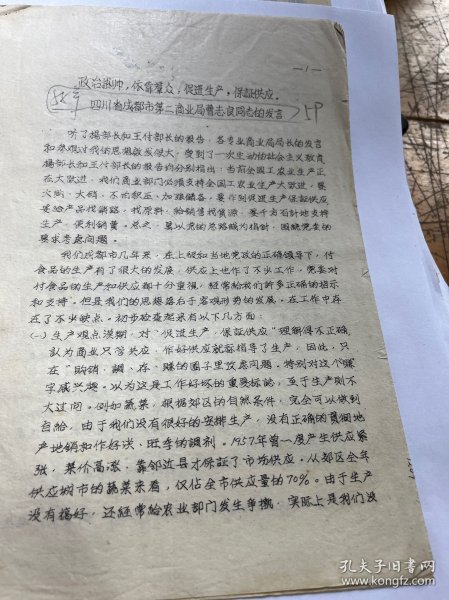 -1-
政治挂帅,依靠群众,促进生产,保证供应.
四川省成都市第二商业局曹志良同志的发言
5P
听了楊部长和王付部长的报告,各专业商业局局长的发言
和参观对我的思想啟发很大,受到了一次生动的社会主义教育
楊部长和王付部长的报告均分别指出:当前全国工农业生产正
在大跃进,我们商业部门必须支持全国工农业生产大跃进,要
大购、大销、不怕积压、加强储备,要作到促进生产保证供应
要给产品找銷路,找原料,给銷售找貨源,要千方百計地支持
生产,便利銷售。总之,要以党的思路线为指針,围绕党委的
要求考虑问题。
我们成都市几年来,在上級和当地党政的正确领导下,付
食品的生产有了很大的发展,供应上也作了不少工作,党委对
付食品的生产和供应都十分重視,经常给我们許多正确的指示
和支持。但是我们的思想落后于客观形势的发展,在工作中存
在了不少缺点。初步检查起来有以下几方面:
(一)生产观点模糊,对"促进生产,保证供应"理解得不正确
認为商业只管供应,作好供应就算指导了生产,因此,只
在"购、銷、調、存、賺的圈子里攷虑问题。特别对这个賺
字感兴趣。以为这是工作好坏的重要标誌,至于生产則不
大过问。例如蔬菜,根据郊区的自然条件,完全可以做到
自给,由于我们没有很好的安排生产,没有正确的貫彻地
产地銷和作好淡、旺季的調剂。1957年曾一度产生供应紧
張,菜价高涨,靠邻近县才保証了市场供应。从郊区全年
供应城市的蔬菜来看,仅佔全市供应量的70%。由于生产
没有搞好,还经常给农业部门发生爭执,实际上是我们没
孔夫子旧书网
www.kongfz.com